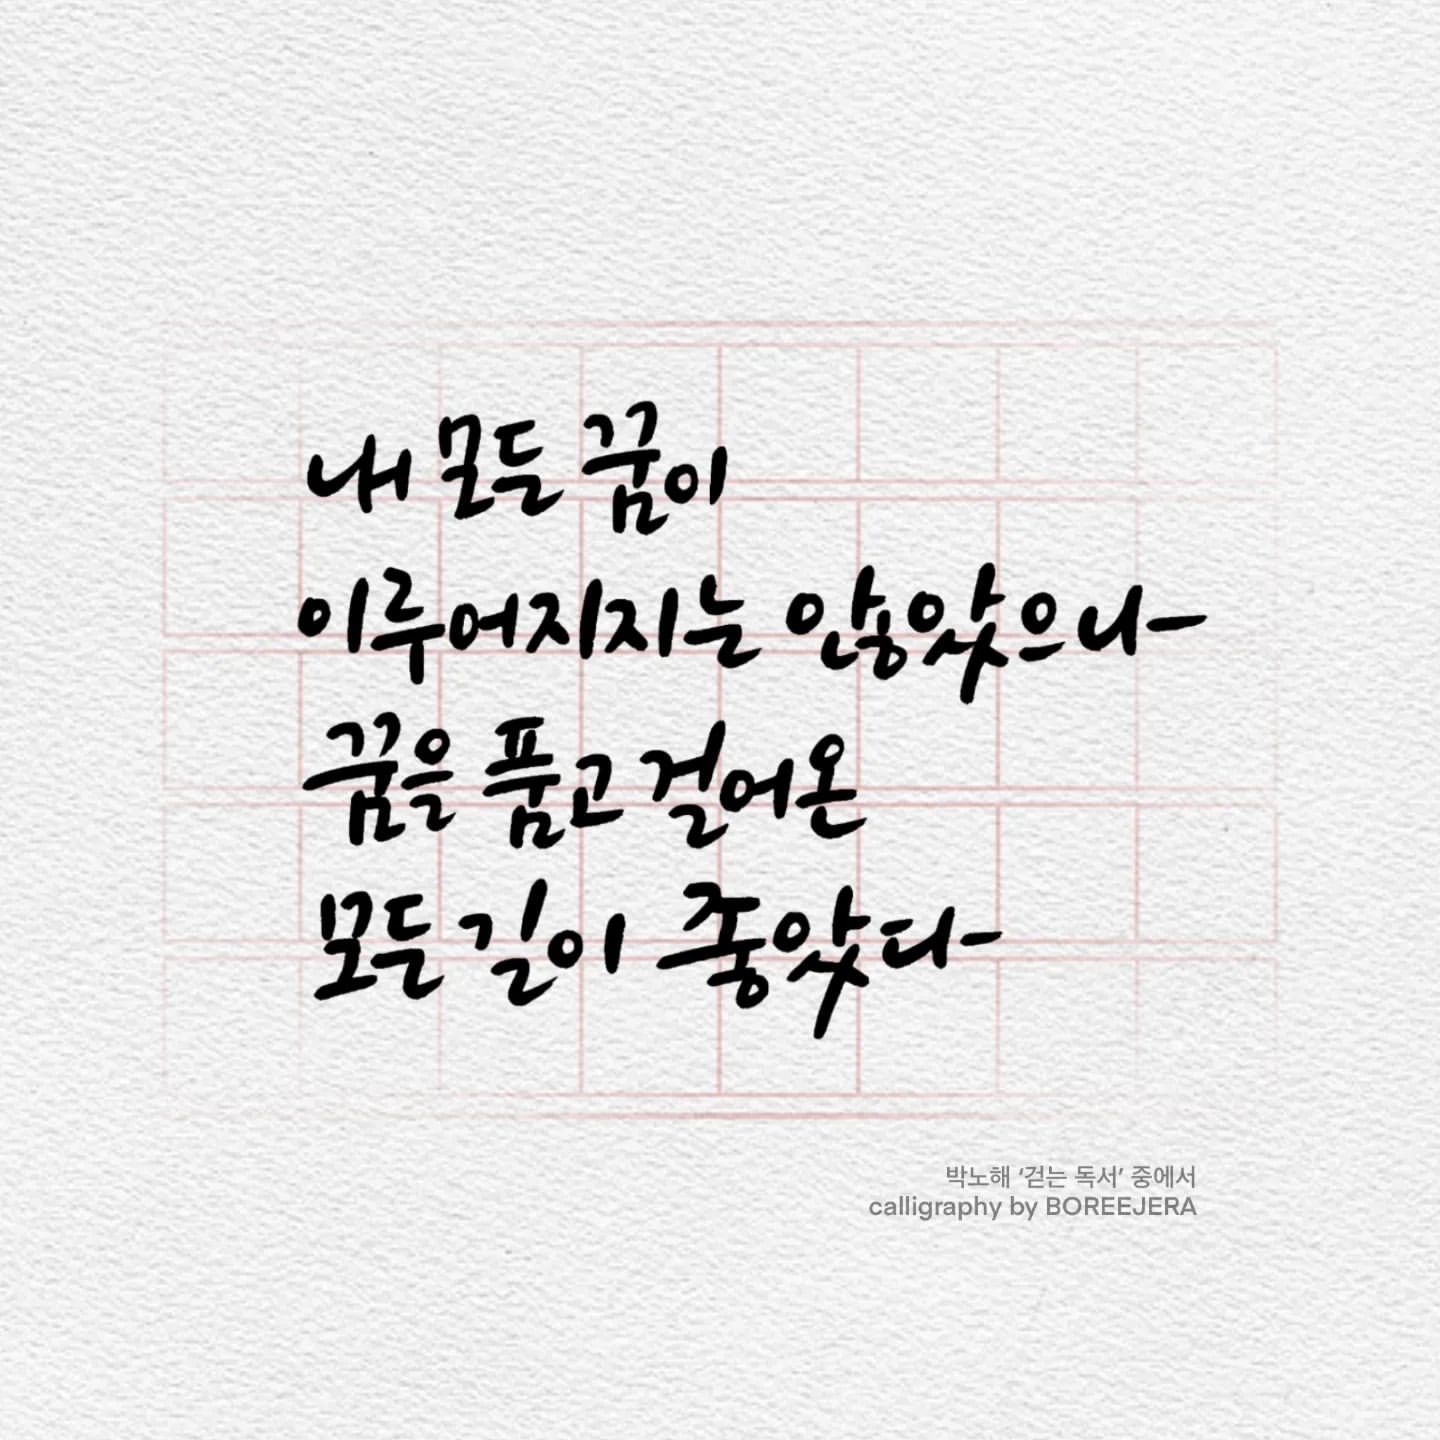 내 모든 꿈이
이루어지지는 않았으나
꿈을 품고 걸어온
모든 길이 좋았다
박노해 ‘걷는 독서’ 중에서
calligraphy by BOREEJERA